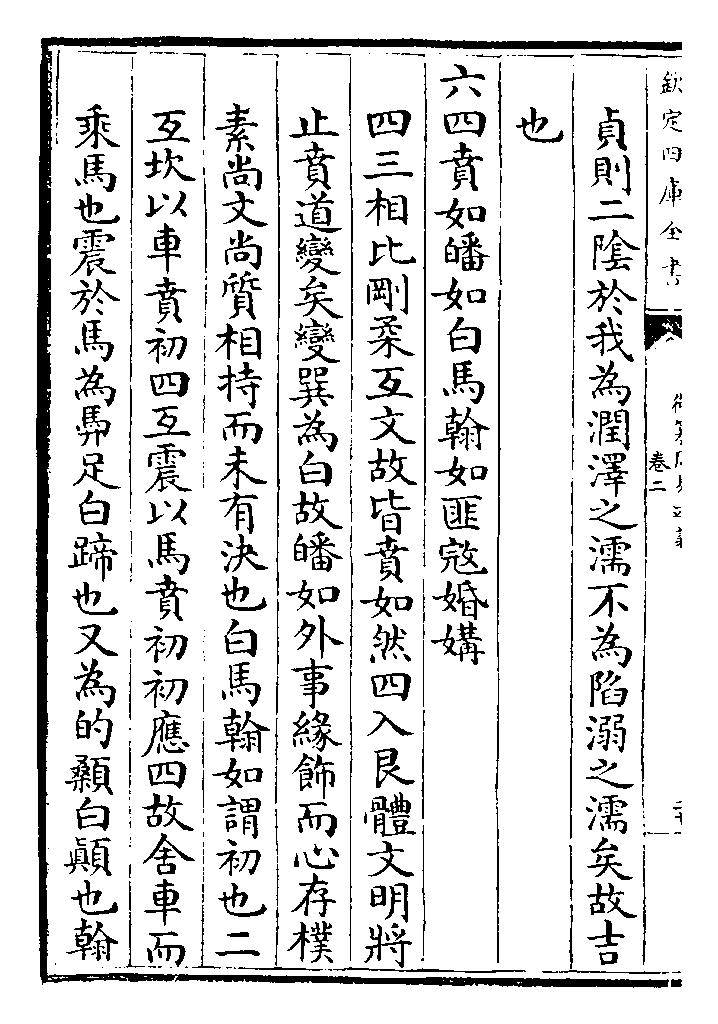 欽定四庫全書
卷二
貞則二陰於我為潤澤之濡不為陷溺之濡矣故吉
也
六四賁如皤如白馬翰如匪寇婚媾
四三相比剛柔互文故皆賁如然四入艮體文明將
止賁道變矣變巽為白故皤如外事緣飾而心存樸
素尚文尚質相持而未有決也白馬翰如謂初也二
互坎以車賁初四互震以馬賁初初應四故舍車而
乘馬也震於馬為馵足白蹄也又為的顙白顛也翰